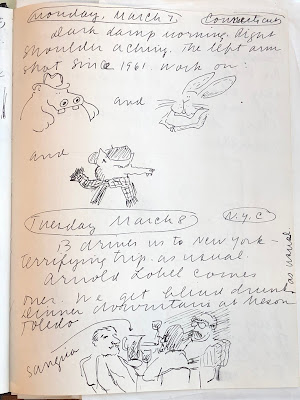 Monday, March 7, Connecticut
Dark damp morning. Right
shoulder aching. The left arm
shot since 1961. Work on:
and
and
Tuesday March 8 N.Y.C.
B drives us to New York –
terrifying trip. as usual.
Arnold Lobel comes
over. We get blind drunk as usual
Dinner downstairs at Meson
Toledo
Sangria